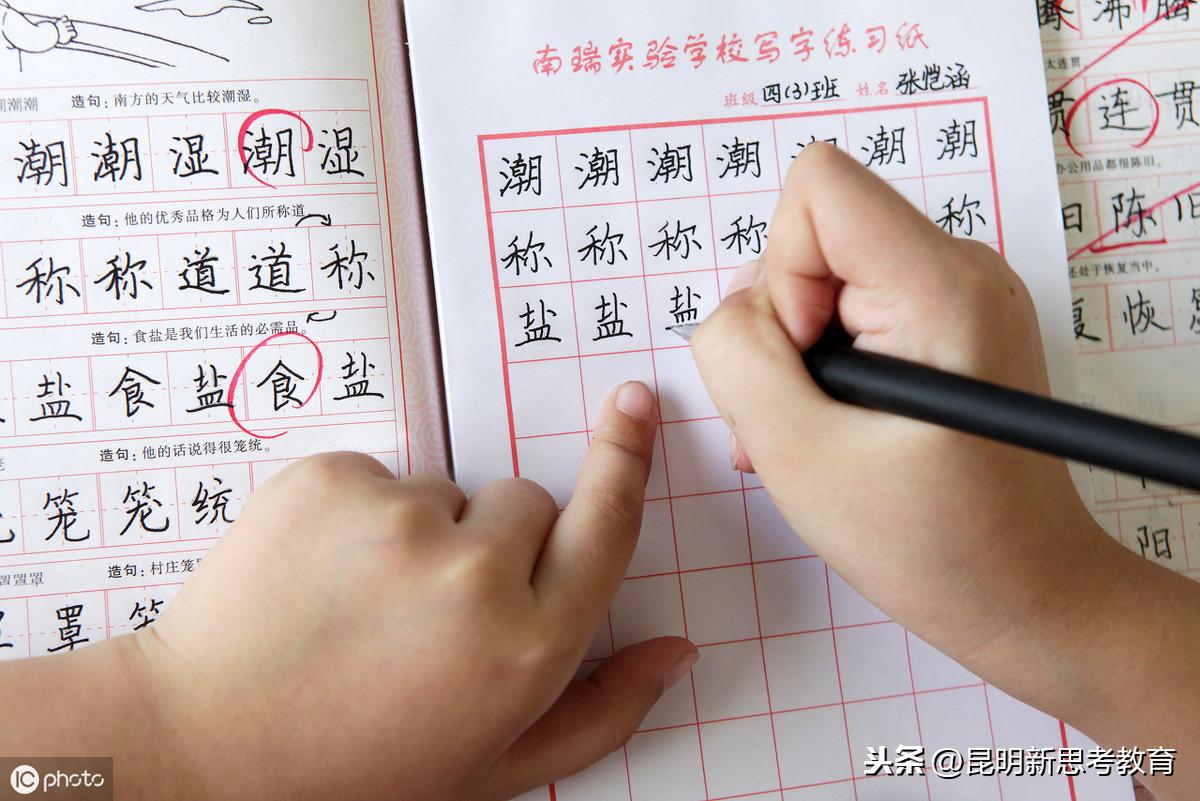 造句:南方的天气比较潮湿。
潮 潮 湿 潮 湿
造句:他的优秀品格为人们所称道
称 称 道 道 称
造句:食盐是我们生活的必需品。
盐 食 盐 食 盐
造句:他的话说得很笼统。
笼 笼 统
造句:村庄笼
罩
南瑞实验学校写字练习纸
班级 四(3)班 姓名 张恺涵
潮 潮 潮 潮 潮 潮 潮
称 称 称 称 称
盐 盐 盐
沸 腾
连 贯
办公用品都很陈旧。
陈 旧
还处于恢复当中。
复 恢
阳
IC photo
头条 @昆明新思考教育